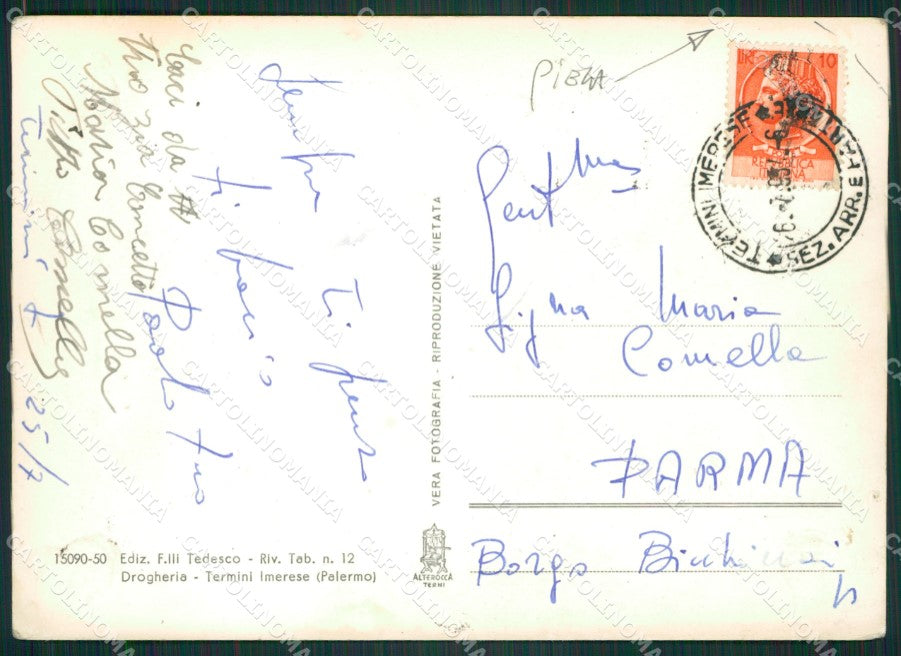 Baci da
tuo zio Concetto
Maria Comella
Termini
25/7
Sempre ti penso
ti bacio
Paolo tuo
PIEGA
LIRE 10
REPUBBLICA
ITALIANA
TERMINI IMERESE ★ SEZ. ARR. E PARTENZE ★
Gent ma
Sig.na Maria
Comella
PARMA
Borgo
VERA FOTOGRAFIA - RIPRODUZIONE VIETATA
15090-50 Ediz. F.lli Tedesco - Riv. Tab. n. 12
Drogheria - Termini Imerese (Palermo)
ALTEROCCA
TERNI
CARTOLINOMANIA